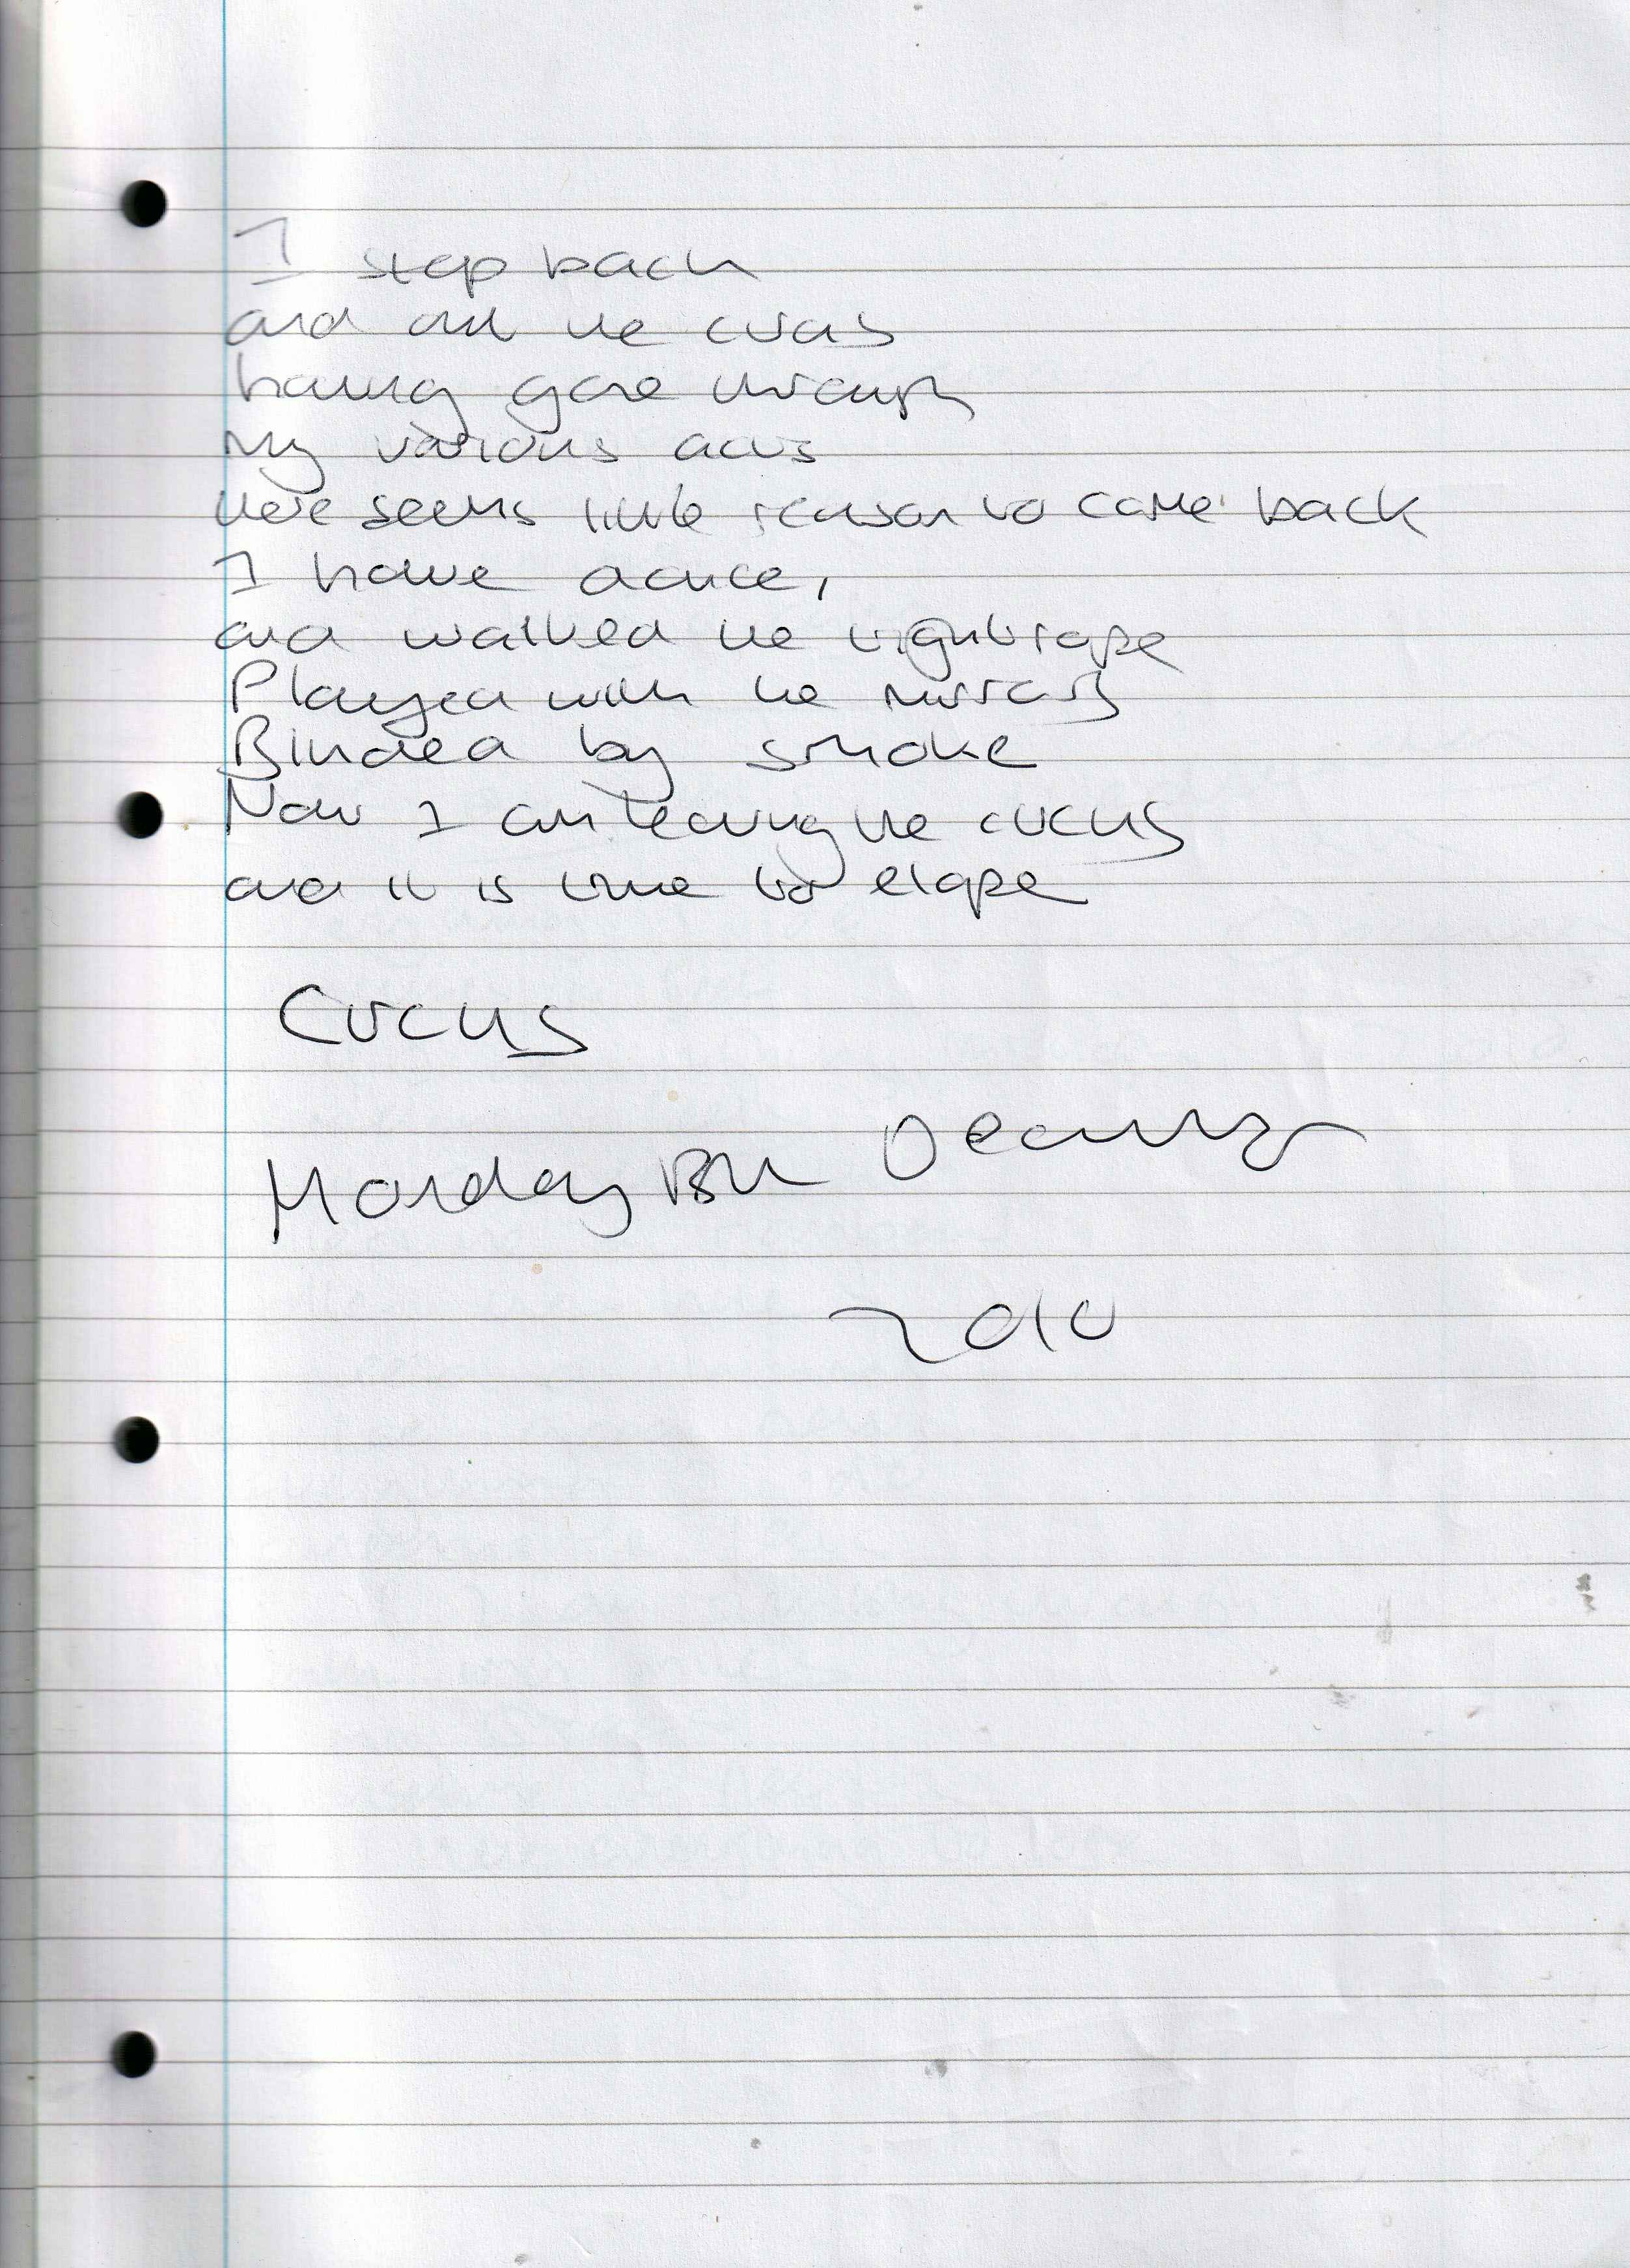 I step back
and all the
having gone through
My various acts
there seems little reason to come back
I have
and walked the tightrope
Played with the mirrors
Blinded by smoke
Now I am leaving the circus
and it is time to elope
Circus
Monday 8th
2010